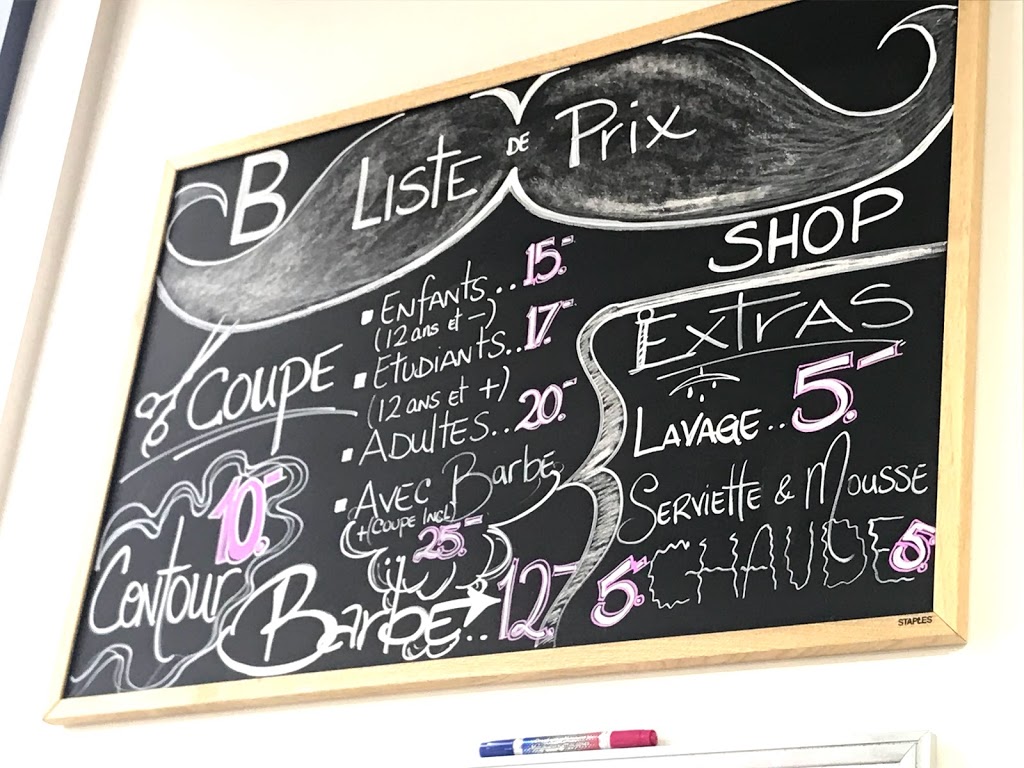 B LISTE DE Prix
SHOP
COUPE
ENFANTS.. 15.-
(12 ans et -)
ETUDIANTS.. 17.-
(12 ans et +)
ADULTES.. 20.-
AVEC Barbe
(+/COUPE INCL)
25.-
Contour 10.-
BarbE.. 12.-
EXTRAS
LAVAGE.. 5.-
SERVIETTE & MOUSSE
5.- CHAUDE 5.-
STAPLES